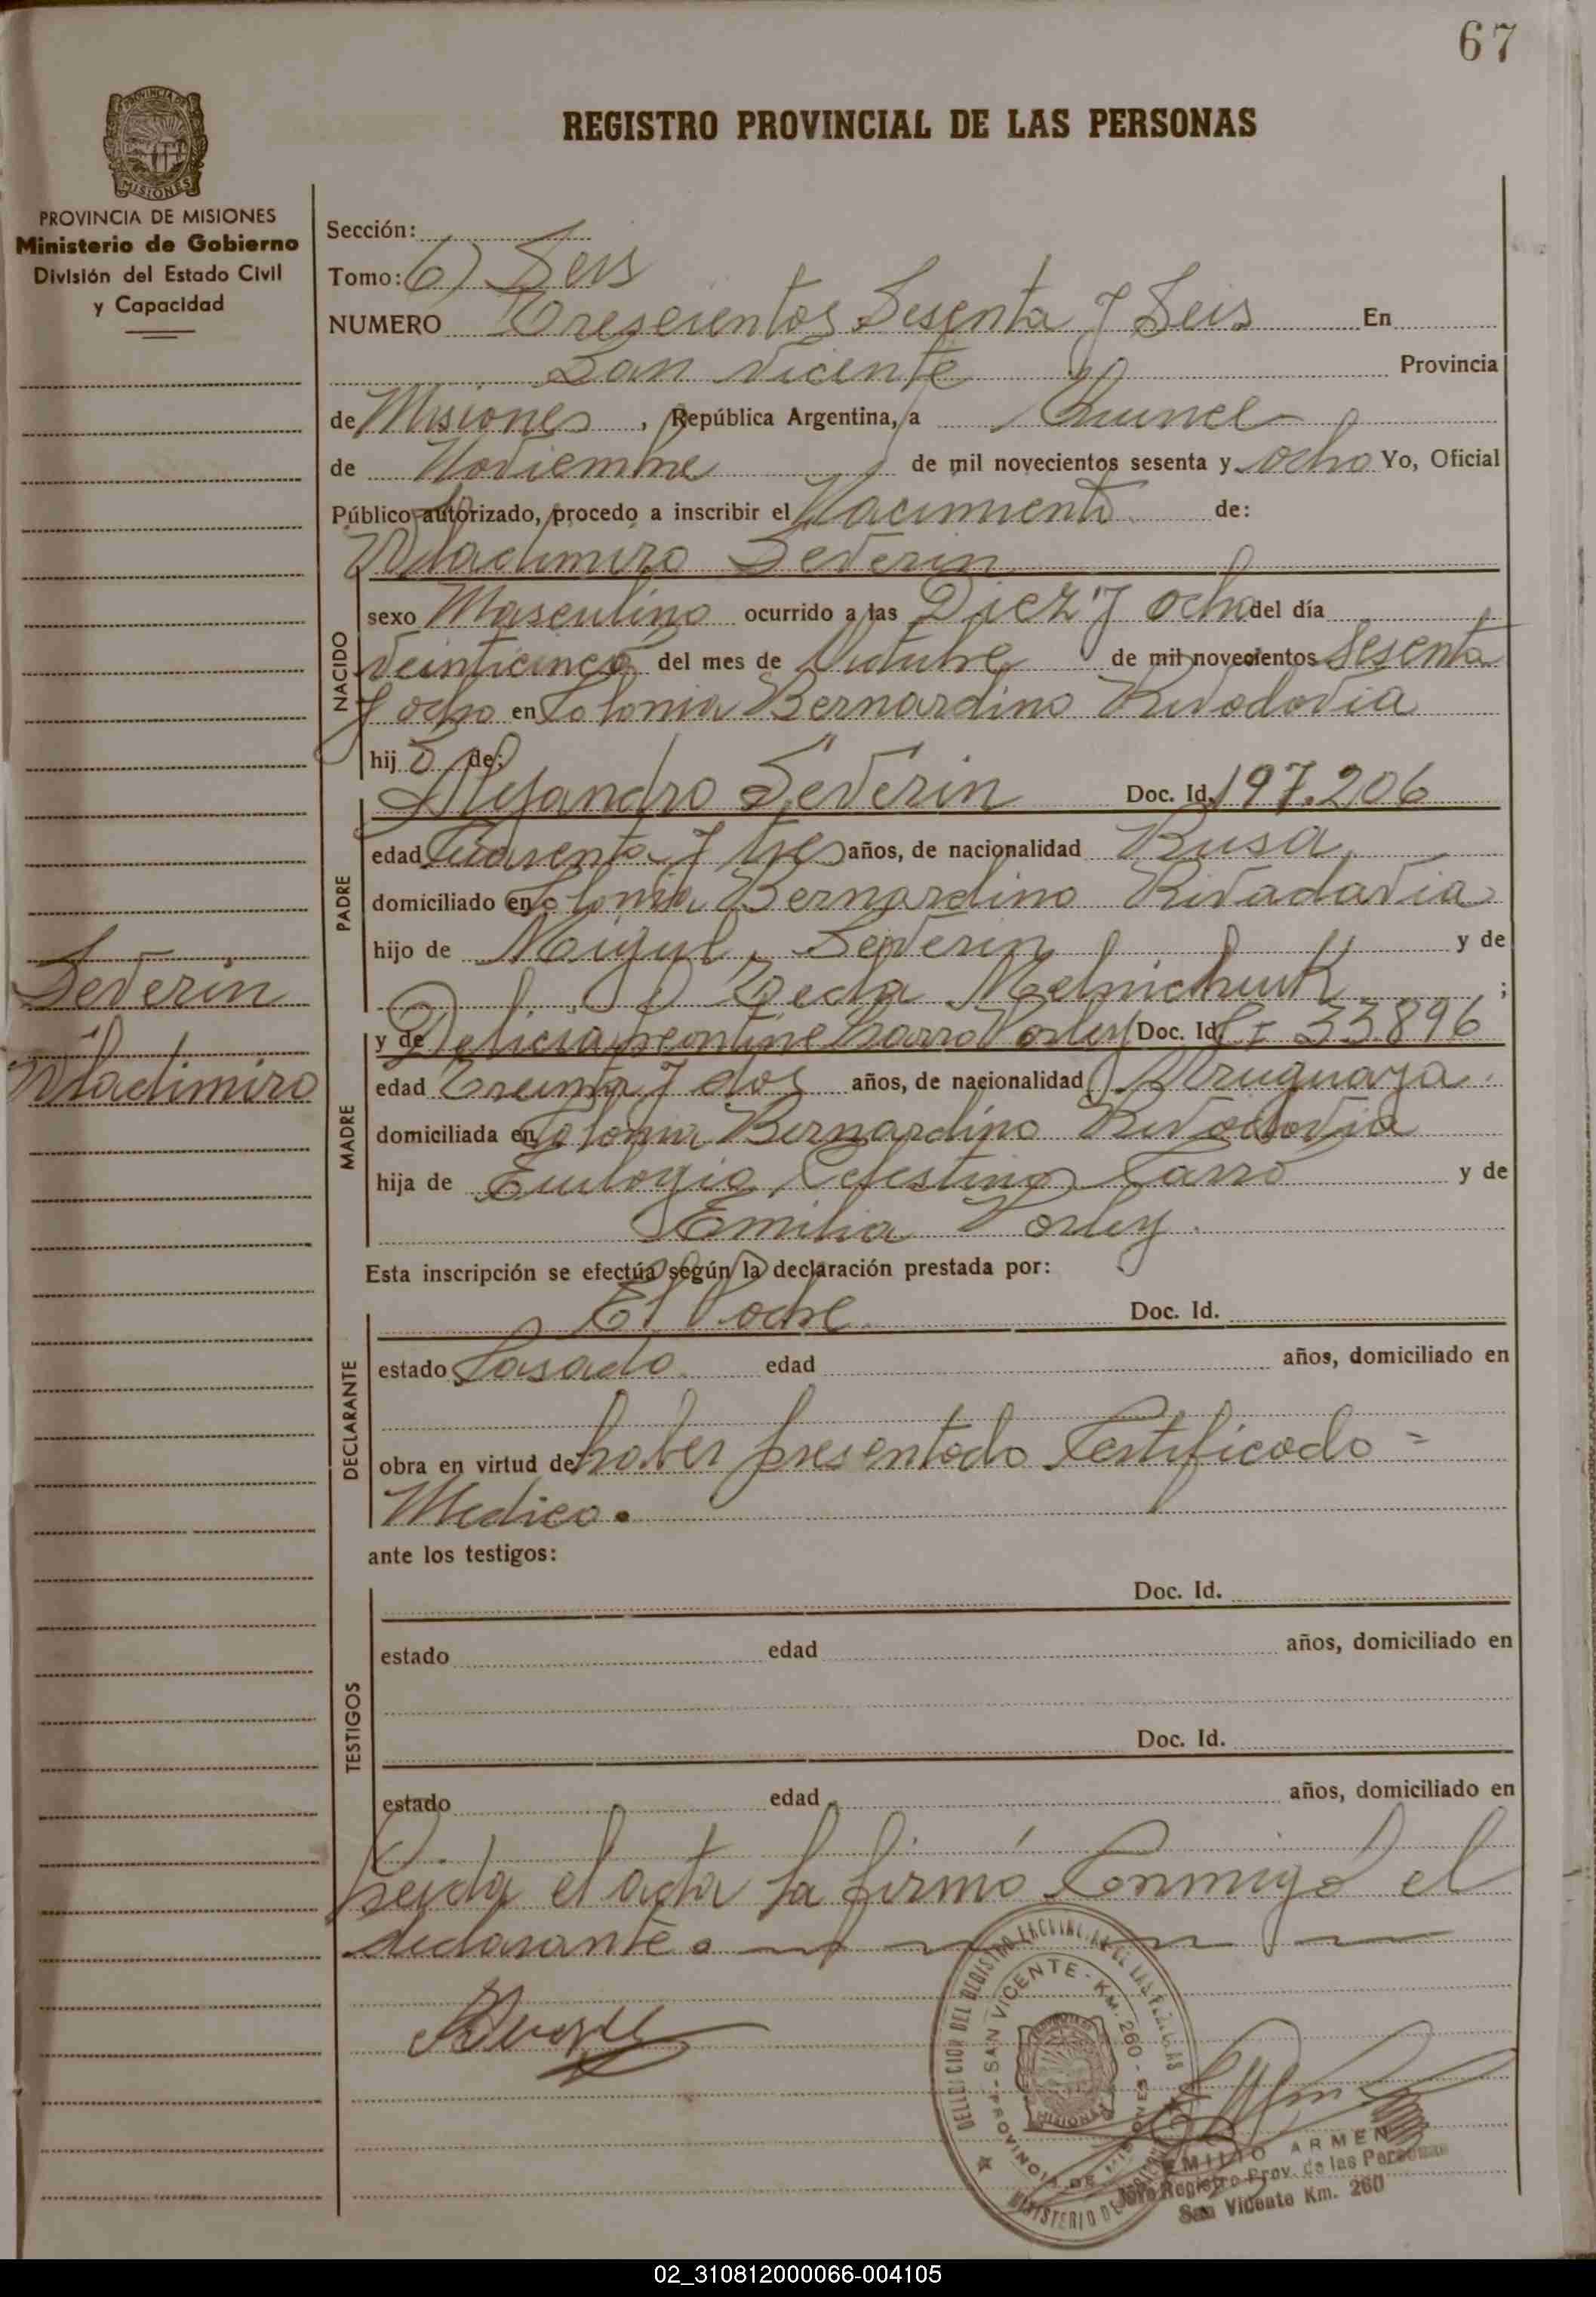 67
REGISTRO PROVINCIAL DE LAS PERSONAS
PROVINCIA DE MISIONES
Ministerio de Gobierno
División del Estado Civil
y Capacidad
Sección:
Tomo: 6) Seis
NUMERO Treseientos Sesenta y Seis En
San Vicente Provincia
de Misiones, República Argentina, a Quince
de Noviembre de mil novecientos sesenta y ocho Yo, Oficial
Público autorizado, procedo a inscribir el Nacimiento de:
Wladimiro Severin
NACIDO
sexo Masculino ocurrido a las Diez y ocho del día
veinticinco del mes de Octubre de mil novecientos Sesenta
y ocho en Colonia Bernardino Rivadavia
hijo de:
Alejandro Severin Doc. Id. 197.206
PADRE
edad Cuarenta y tres años, de nacionalidad Rusa
domiciliado en Colonia Bernardino Rivadavia
hijo de Miguel Severin y de
Tecla Melnichuk ;
y de Delicia Leontine Carro Vorley Doc. Id. 33.896
MADRE
edad Treinta y dos años, de nacionalidad Uruguaya
domiciliada en Colonia Bernardino Rivadavia
hija de Eulogio Celestino Carro y de
Emilia Vorley.
Severin
Wladimiro
Esta inscripción se efectúa según la declaración prestada por:
El Padre Doc. Id.
DECLARANTE
estado Casado edad años, domiciliado en
obra en virtud de haber presentado Certificado =
Medico.
ante los testigos:
Doc. Id.
TESTIGOS
estado edad años, domiciliado en
Doc. Id.
estado edad años, domiciliado en
Leida el acta la firmó Conmigo el
declarante.
DELEGACION DEL REGISTRO PROVINCIAL DE LAS PERSONAS
SAN VICENTE - KM. 260 -
PROVINCIA DE MISIONES
MINISTERIO DE
EMILIO ARMEN
Jefe Registro Prov. de las Personas
San Vicente Km. 260
02_310812000066-004105